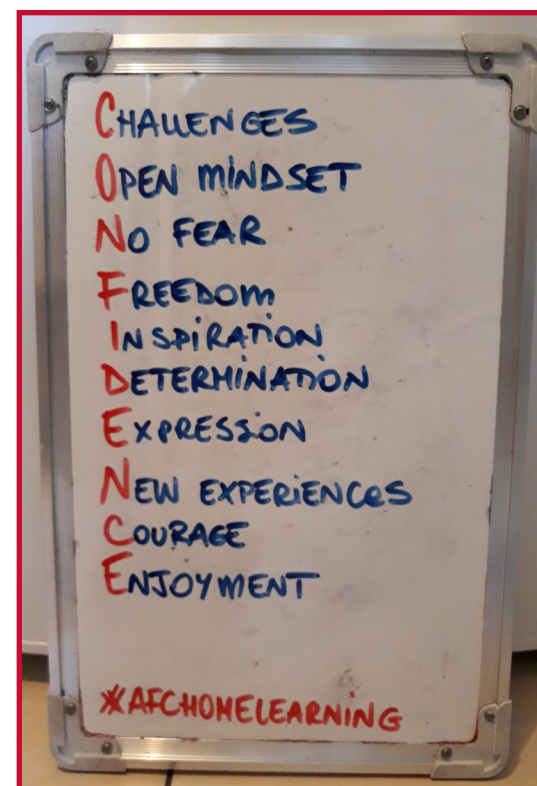 CHALLENGES
OPEN MINDSET
NO FEAR
FREEDOM
INSPIRATION
DETERMINATION
EXPRESSION
NEW EXPERIENCES
COURAGE
ENJOYMENT
#AFCHOMELEARNING